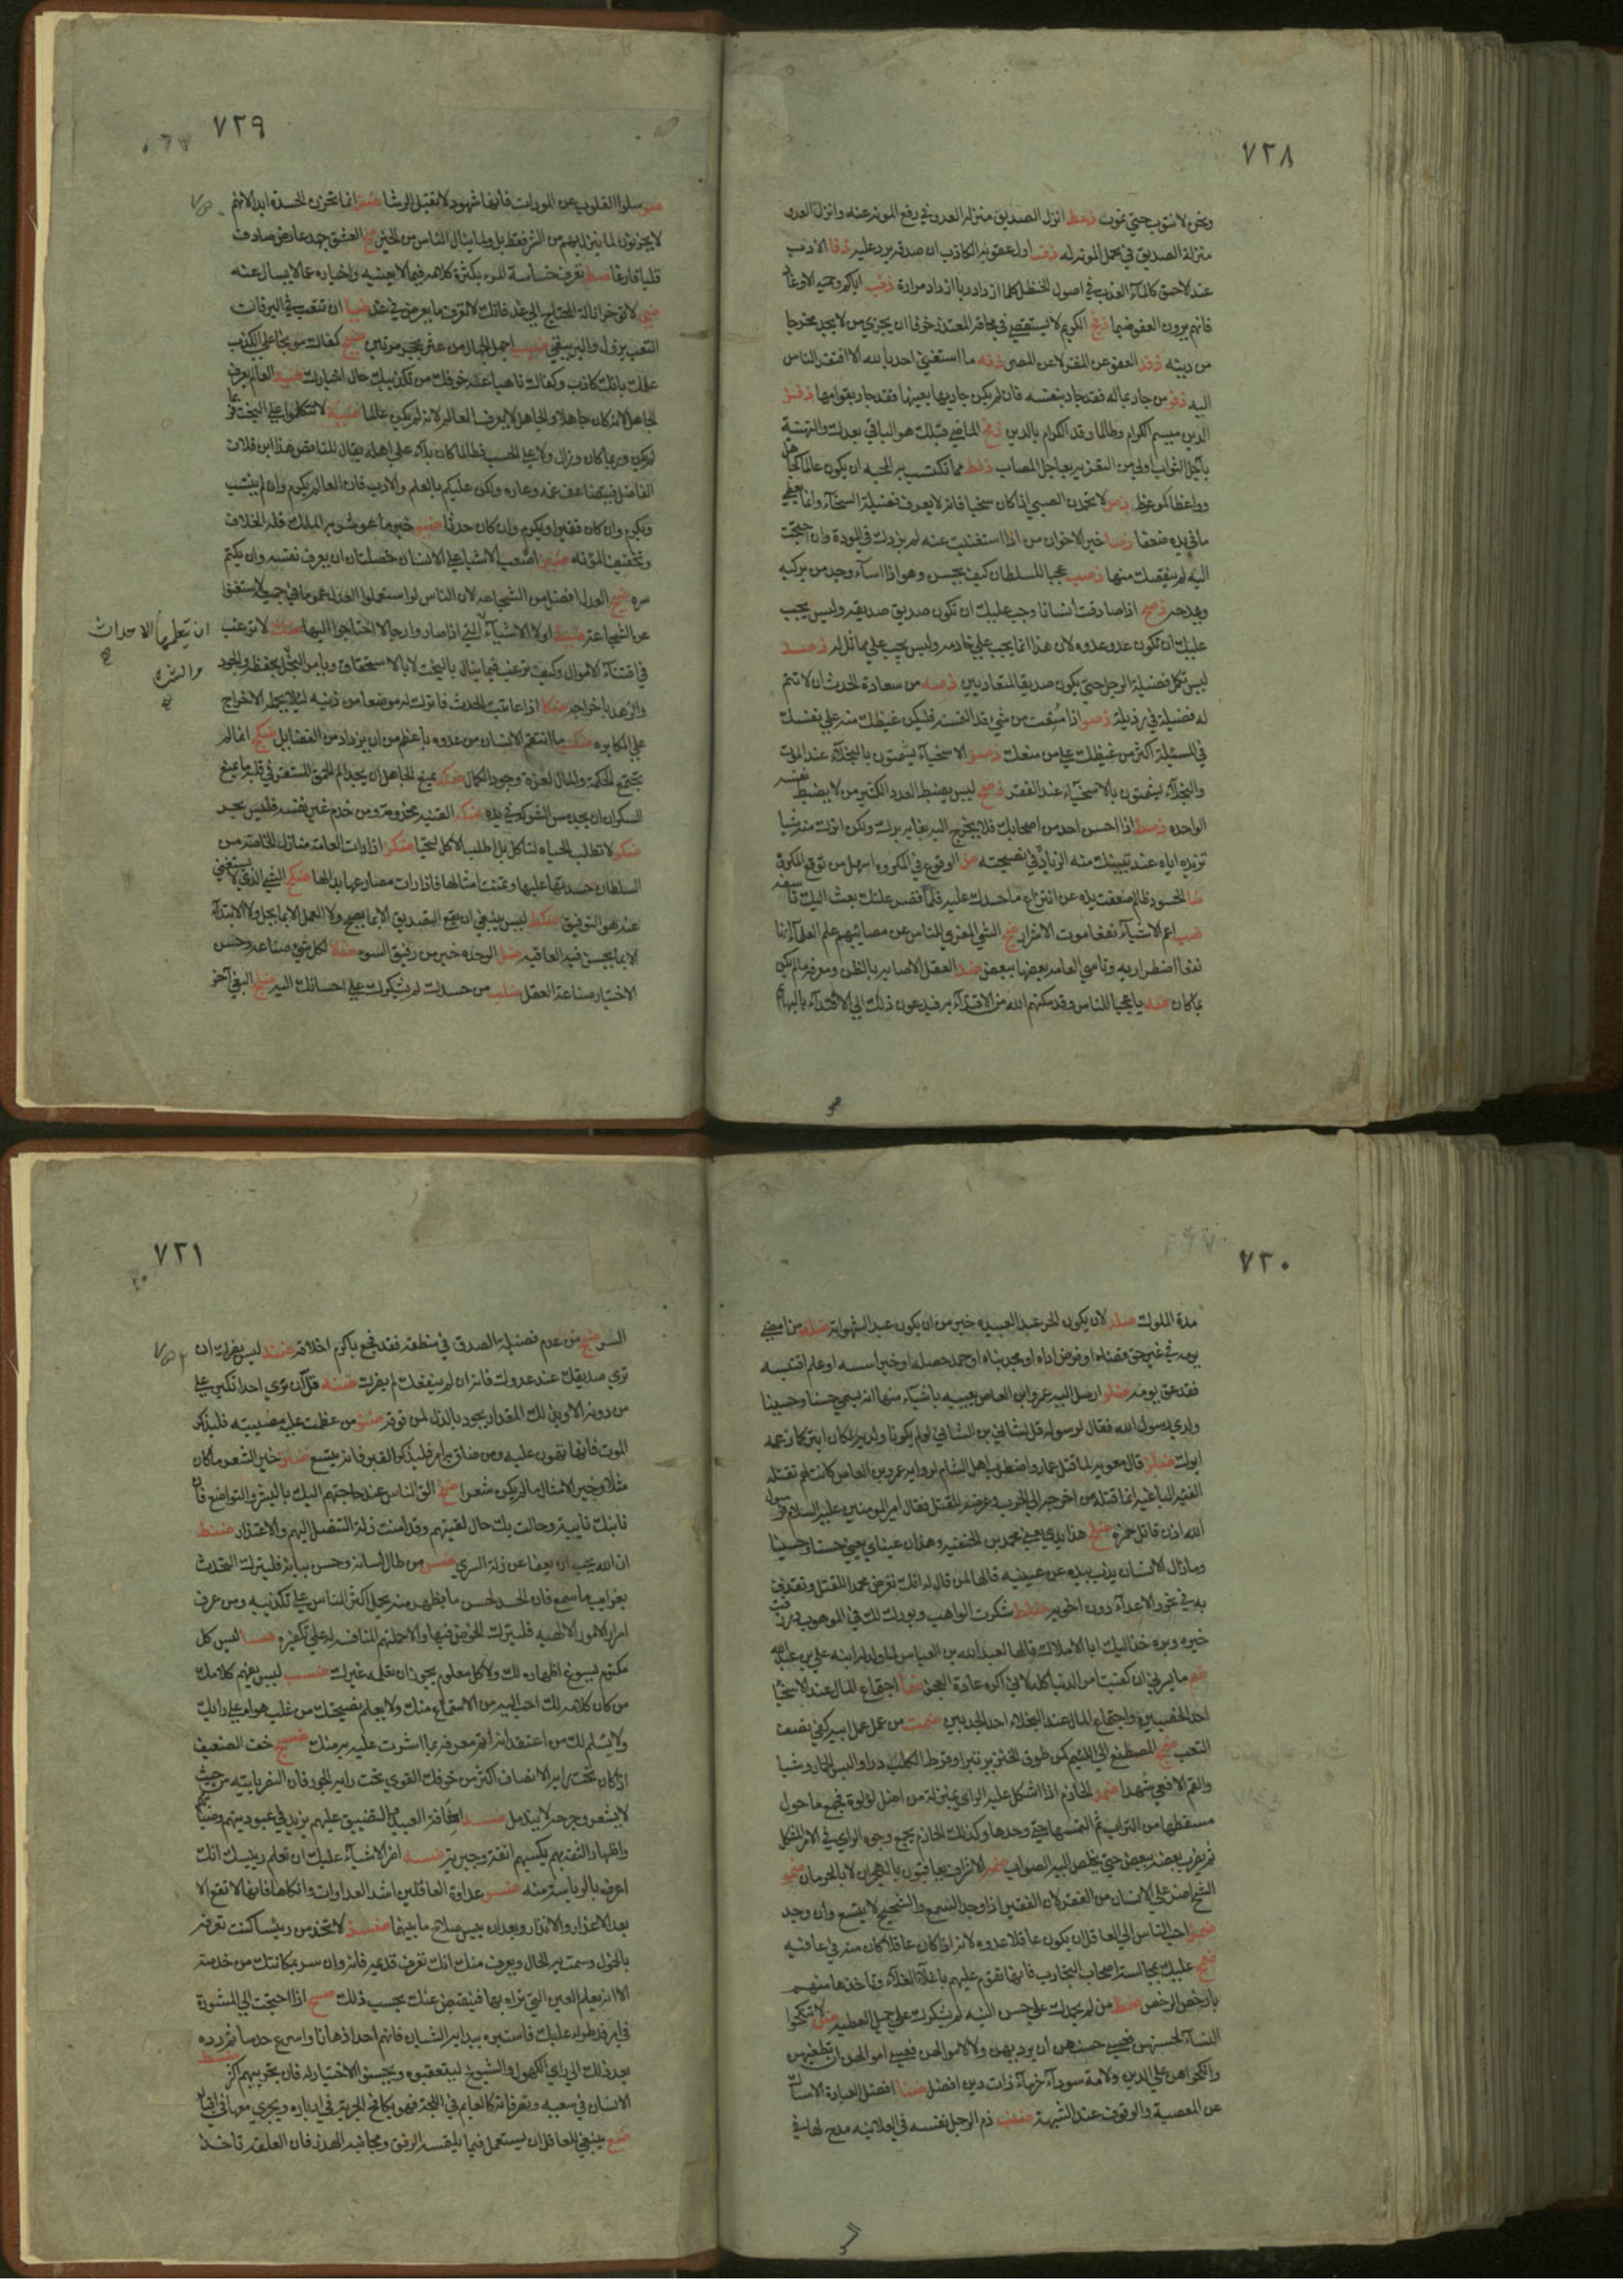 ٧٢٨
ونحن لا نتوب حتى نموت ذعط انزل الصديق منزلة العدو في رفع المونه عنه وانزل العدو
منزلة الصديق في تحمل المونه له ذف اول عقوبة الكاذب ان صدقه يرد عليه ذفا الادب
عند الاحمق كالماء العذب في اصول الحنظل كلما ازداد ريا ازداد مرارة ذفب اياكم وحمية الاوغاد
فانهم يرون العفو ضيما ذفج الكريم لا يستقصي في محاقة المعتذر خوفا ان يجزي من لا يجد مخرجا
من ذنبه ذفد العفو عن المقر لا عن المصر ذفه ما استغنى احد بالله الا افتقر الناس
اليه ذفو من جاد بماله فقد جاد بنفسه فان لم يكن جاد بها بعينها فقد جاد بقوامها ذفز
الدين ميسم الكرام وطالما وقذ الكرام بالدين ذفح الماضي قبلك هو الباقي بعدك والتهنئة
بآجل الثواب اولى من التعزية بعاجل المصاب ذفط مما تكتسب به المحبة ان يكون عالما كجاهل
وواعظا كموعوظ ذص لا تحمدن الصبي اذا كان سخيا فانه لا يعرف فضيلة السخاء وانما يعطي
ما في يده ضعفا ذصا خير الاخوان من اذا استغنيت عنه لم يزدك في المودة وان احتجت
اليه لم ينقصك منها ذصب عجبا للسلطان كيف يحسن وهو اذا اساء وجد من يزكيه
ويمدحه ذصج اذا صادقت انسانا وجب عليك ان تكون صديق صديقه وليس يجب
عليك ان تكون عدو عدوه لان هذا انما يجب على خادمه وليس يجب على مماثل له ذصد
ليس تكمل فضيلة الرجل حتى يكون صديقا لمتعاديين ذصه من سعادة الحدث ان لا تتم
له فضيلة في رذيلة ذصو اذا منعت من شيء قد التمسته فليكن غيظك منه على نفسك
في المسئلة اكثر من غيظك على من منعك ذصز الاسخياء يشمتون بالبخلاء عند الموت
والبخلاء يشمتون بالاسخياء عند الفقر ذصح ليس يضبط العدد الكثير من لا يضبط نفسه
الواحدة ذصط اذا احسن احد من اصحابك فلا تخرج اليه بغاية برك ولكن اترك منه شيئا
تزيده اياه عند تبينك منه الزيادة في نصيحته ض الوقوع في المكروه اسهل من توقع المكروه
ضا الحسود ظالم ضعفت يده عن انتزاع ما حسدك عليه فلما قصر عنك بعث اليك تاسفه
ضب اعم الاشياء نفعا موت الاشرار ضج الشيء المعزي للناس عن مصائبهم علم العلماء انها
نفعا اضطرارية وتاسي العامة بعضها ببعض ضد العقل الاصابة بالظن ومعرفة ما لم يكن
بما كان ضه يا عجبا للناس وقد مكنهم الله من الاقتداء به فيدعون ذلك الى الاقتداء بالبهائم
٧٢٩
ضو سلوا القلوب عن المودات فانها شهود لا تقبل الرشا ضز انما تحزن الحسدة ابدا لانهم
لا يحزنون لما ينزل بهم من الشر فقط بل ولما ينال الناس من الخير ضح العشق جهد عارض صادف
قلبا فارغا ضط تعرف خساسة المرء بكثرة كلامه فيما لا يعنيه واخباره عما لا يسال عنه
ضي لا تؤخر انالة المحتاج الى غد فانك لا تعرف ما يعرض في غد ضيا ان تتعب في البر فان
التعب يزول والبر يبقى ضيب اجهل الجهال من عثر بحجر مرتين ضيج كفاك موبخا على الكذب
علمك بانك كاذب وكفاك ناهيا عنه خوفك من تكذيبك حال اخبارك ضيد العالم يعرف
الجاهل لانه كان جاهلا والجاهل لا يعرف العالم لانه لم يكن عالما ضيه لا تتكلوا على البخت فربما
لم يكن وربما كان وزال ولا على الحسب فطالما كان بلاء على اهله يقال للناقص هذا ابن فلان
الفاضل فيتضاعف غمه وعاره ولكن عليكم بالعلم والادب فان العالم يكرم وان لم ينتسب
ويكرم وان كان فقيرا ويكرم وان كان حدثا ضيو خير ما عوشر به الملك قلة الخلاف
وتخفيف المؤنة ضيز اصعب الاشياء على الانسان خصلتان ان يعرف نفسه وان يكتم
سره ضيح العدل افضل من الشجاعة لان الناس لو استعملوا العدل عموما في جميعهم لاستغنوا
عن الشجاعة ضيط اولا الاشياء التي اذا صاروا رجالا احتاجوا اليها ضك لا ترغب
ان يتعلمها الاحداث
في اقتناء الاموال وكيف ترغب فيما ينال بالبخت لا بالاستحقاق ويامر البخل بحفظه والجود
والشره
والزهد باخراجه ضكا اذا عاتبت الحدث فاترك له موضعا من ذنبه لئلا يحمله الاخراج
على المكابرة ضكب ما انتقم الانسان من عدوه باعظم من ان يزداد من الفضائل ضكج انما لم
تجتمع الحكمة والمال لعزة وجود الكمال ضكد يمنع الجاهل ان يجد الم الحمق المستقر في قلبه ما يمنع
السكران ان يجد مس الشوكة في يده ضكه القنية مخدومة ومن خدم غير نفسه فليس بحر
ضكو لا تطلب الحياة لتاكل بل اطلب الاكل لتحيا ضكز اذا رات العامة منازل الخاصة من
السلطان حسدتها عليها وتمنت امثالها فاذا رات مصارعها بدا لها ضكح الشيء الذي لا يستغني
عنه هو التوفيق ضكط ليس ينبغي ان يقع التصديق الا بما يصح ولا العمل الا بما يحل ولا الابتداء
الا بما يحسن فيه العاقبة ضل الوحدة خير من رفيق السوء ضلا لكل شيء صناعة وحسن
الاختيار صناعة العقل ضلب من حسدك لم يشكرك على احسانك اليه ضلج البغي آخر
٧٣٠
مدة الملوك ضلد لان يكون الحر عبدا لعبيده خير من ان يكون عبدا لشهواته ضله من امضى
يومه في غير حق قضاه او فرض اداه او مجد بناه او حمد حصله او خير اسسه او علم اقتبسه
فقد عق يومه ضلو ارسل اليه عمرو ابن العاص يعيبه باشياء منها انه يسمي حسنا وحسينا
ولدي رسول الله فقال لرسوله قل للشانئ بن الشانئ لو لم يكونا ولديه لكان ابتر كما زعمه
ابوك ضلز قال معوية لما قتل عمار واضطرب اهل الشام لرواية عمرو بن العاص كانت لهم تقتله
الفئة الباغية انما قتله من اخرجه الى الحرب وعرضه للقتل فقال امير المومنين عليه السلام فرسول
الله اذن قاتل حمزة ضلح هذا يدي يعني محمد بن الحنفية وهذان عيناي يعني حسنا وحسينا
وما زال الانسان يذب بيده عن عينيه قالها لمن قال له انك تعرض محمدا للقتل وتقذف
به في نحور الاعداء دون اخويه ضلط شكرت الواهب وبورك لك في الموهوب ورزقت
خيره وبره خذ اليك ابا الاملاك قالها لعبد الله بن العباس لما ولد له ابنه علي بن عبد الله
ضم ما يسرني ان كفيت امر الدنيا كله لاني اكره عادة العجز ضما اجتماع المال عند الاسخياء
احد الخصبين واجتماع المال عند البخلاء احد الجدبين ضمب من عمل عمل ابيه كفي نصف
التعب ضمج المصطنع الى اللئيم كمن طوق الخنزير تبرا وقرط الكلب درا والبس الحمار وشيا
والقم الافعى شهدا ضمد الحازم اذا اشكل عليه الراي بمنزلة من اضل لؤلؤة فجمع ما حول
مسقطها من التراب ثم التمسها حتى وجدها وكذلك الحازم يجمع وجوه الراي في الامر المشكل
ثم يضرب بعضه ببعض حتى يخلص اليه الصواب ضمه الاشراف يعاقبون بالهجران لا بالحرمان ضمو
الشح اضر على الانسان من الفقر لان الفقير اذا وجد اتسع والشحيح لا يتسع وان وجد
ضمز احب الناس الى العاقل ان يكون عاقلا عدوه لانه اذا كان عاقلا كان منه في عافية
ضمح عليك بمجالسة اصحاب التجارب فانها تقوم عليهم باغلى الغلاء وتاخذها منهم
بارخص الرخص ضمط من لم يحمدك على حسن النية لم يشكرك على جميل العطية ضن لا تنكحوا
النساء لحسنهن فعسى حسنهن ان يرديهن ولا لاموالهن فعسى اموالهن ان تطغيهن
وانكحوهن على الدين ولامة سوداء خرماء ذات دين افضل ضنا افضل العبادة الامساك
عن المعصية والوقوف عند الشبهة ضنب ذم الرجل نفسه في العلانية مدح لها في
٧٣١
السر ضنج من عدم فضيلة الصدق في منطقه فقد فجع باكرم اخلاقه ضند ليس يضرك ان
ترى صديقك عند عدوك فانه ان لم ينفعك لم يضرك ضنه قل ان ترى احدا تكبر على
من دونه الا وبذلك المقدار يجود بالذل لمن فوقه ضنو من عظمت عليه مصيبته فليذكر
الموت فانها تهون عليه ومن ضاق به امر فليذكر القبر فانه يتسع ضنز خير الشعر ما كان
مثلا وخير الامثال ما لم يكن شعرا ضنح الق الناس عند حاجتهم اليك بالبشر والتواضع فان
نابتك نائبة وحالت بك حال لقيتهم وقد امنت ذلة التنصل اليهم والاعتذار ضنط
ان الله يحب ان يعفا عن زلة السري ضس من طال لسانه وحسن بيانه فليترك التحدث
بغرايب ما سمع فان الحسد لحسن ما يظهر منه يحمل اكثر الناس على تكذيبه ومن عرف
اسرار الامور الالهية فليترك الخوض فيها والا حملتهم المنافسة له على تكفيره ضسا ليس كل
مكتوم يسوغ اظهاره لك ولا كل معلوم يجوز ان تعلمه غيرك ضسب ليس يفهم كلامك
من كان كلامه لك احب اليه من الاستماع منك ولا يعلم نصيحتك من غلب هواه على رايك
ولا يسلم لك من اعتقد انه اتم معرفة بما اشرت عليه به منك ضسج خف الضعيف
اذا كان تحت راية الانصاف اكثر من خوفك القوي تحت راية الجور فان النصر ياتيه من حيث
لا يشعر وجرحه لا يندمل ضسد اخافة العبيد والتضييق عليهم يزيد في عبوديتهم وصيانتهم
واظهار الثقة بهم يكسبهم انفة وجبرية ضسه اضر الاشياء عليك ان تعلم رئيسك انك
اعرف بالرياسة منه ضسو عداوة العاقلين اشد العداوات وانكاها فانها لا تقع الا
بعد الاعذار والانذار وبعد ان يئس صلاح ما بينهما ضسز لا تخدمن رئيسا كنت تعرفه
بالخمول وسمت به الحال ويعرف منك انك تعرف قديمه فانه وان سر بمكانتك من خدمته
الا انه يعلم العين التي تراه بها فينقبض عنك بحسب ذلك ضسح اذا احتجت الى المشورة
في امر قد طرا عليك فاستبده ببداية الشبان فانهم احد اذهانا واسرع حدسا ثم رده
بعد ذلك الى راي الكهول والشيوخ ليتعقبوه ويحسنوا الاختيار له فان تجربتهم اكثر ضسط
الانسان في سعيه وتصرفاته كالعايم في اللجة فهو يكافح الجرية في ادباره ويجري معها في اقباله
ضع ينبغي للعاقل ان يستعمل فيما يلتمسه الرفق ومجانبة الهذر فان العلقة تاخذ